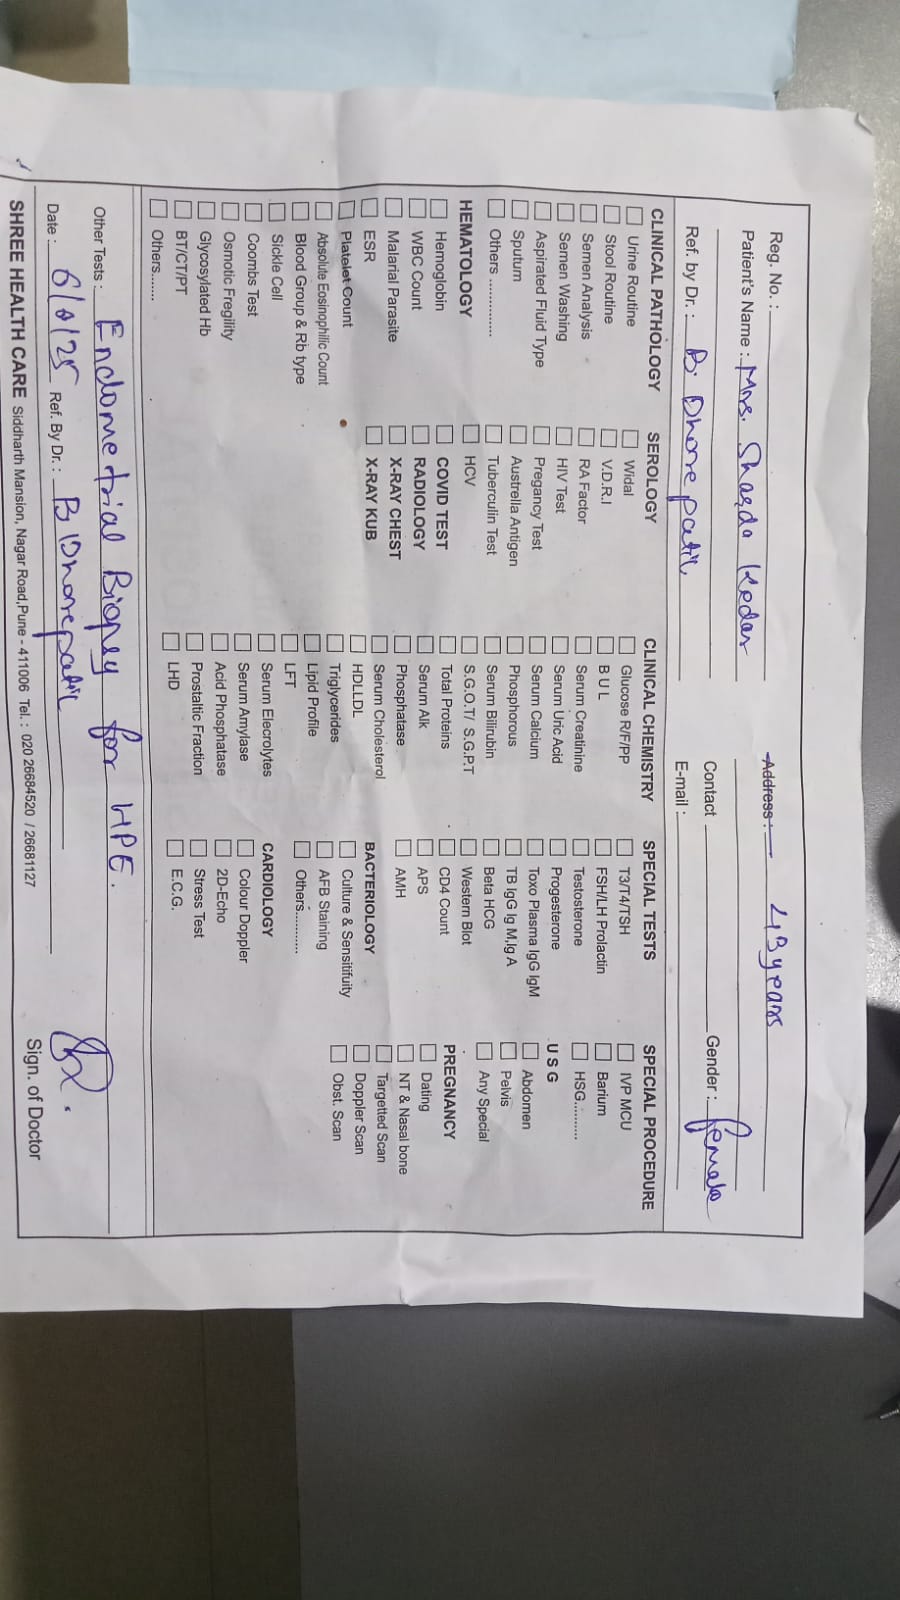 Reg. No. :
Address : 43 years
Patient's Name : Mrs. Sharda Kedar
Contact Gender : female
Ref. by Dr. : B. Dhorepatil E-mail :
CLINICAL PATHOLOGY
Urine Routine
Stool Routine
Semen Analysis
Semen Washing
Aspirated Fluid Type
Sputum
Others ............
HEMATOLOGY
Hemoglobin
WBC Count
Malarial Parasite
ESR
Platelet Count
Absolute Eosinophilic Count
Blood Group & Rb type
Sickle Cell
Coombs Test
Osmotic Fregility
Glycosylated Hb
BT/CT/PT
Others........
SEROLOGY
Widal
V.D.R.I
RA Factor
HIV Test
Pregancy Test
Austrella Antigen
Tuberculin Test
HCV
COVID TEST
RADIOLOGY
X-RAY CHEST
X-RAY KUB
CLINICAL CHEMISTRY
Glucose R/F/PP
B U L
Serum Creatinine
Serum Uric Acid
Serum Calcium
Phosphorous
Serum Bilirubin
S.G.O.T/ S.G.P.T
Total Proteins
Serum Alk
Phosphatase
Serum Cholesterol
HDLLDL
Triglycerides
Lipid Profile
LFT
Serum Elecrolytes
Serum Amylase
Acid Phosphatase
Prostaltic Fraction
LHD
SPECIAL TESTS
T3/T4/TSH
FSH/LH Prolactin
Testosterone
Progesterone
Toxo Plasma IgG IgM
TB IgG Ig M,Ig A
Beta HCG
Western Blot
CD4 Count
APS
AMH
BACTERIOLOGY
Culture & Sensitifuity
AFB Staining
Others............
CARDIOLOGY
Colour Doppler
2D-Echo
Stress Test
E.C.G.
SPECIAL PROCEDURE
IVP MCU
Barium
HSG..........
U S G
Abdomen
Pelvis
Any Special
PREGNANCY
Dating
NT & Nasal bone
Targetted Scan
Doppler Scan
Obst. Scan
Other Tests : Endometrial Biopsy for HPE.
Date : Ref. By Dr. : B Dhorepatil Sign. of Doctor
SHREE HEALTH CARE Siddharth Mansion, Nagar Road,Pune - 411006 Tel. : 020 26684520 / 26681127